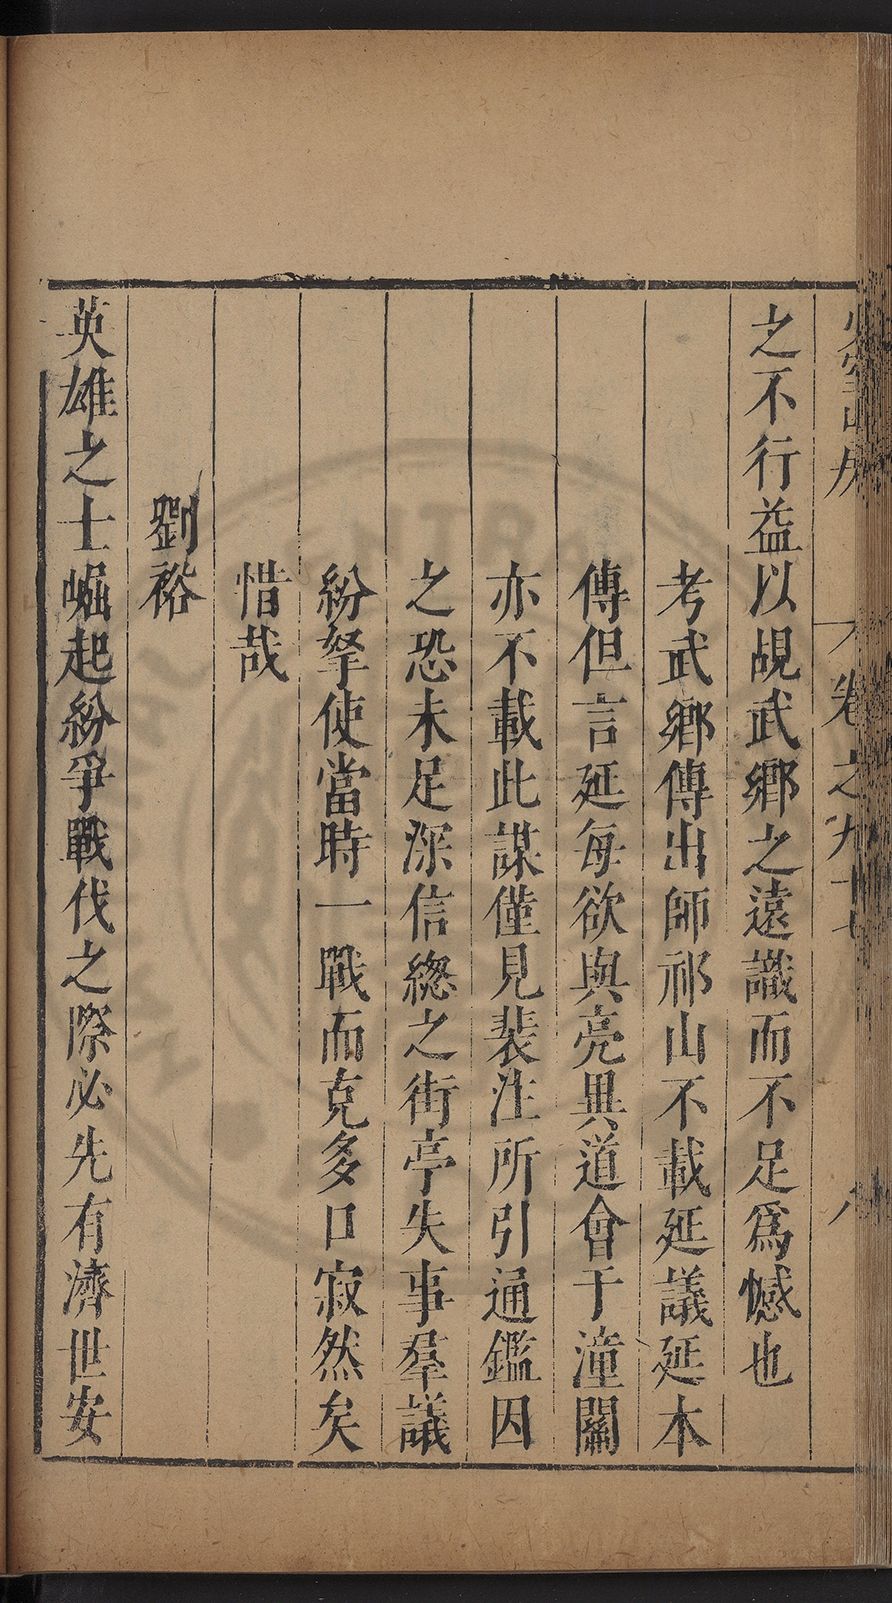 少室山房 卷之九十七 八
之不行益以覘武鄉之遠識而不足爲憾也
考武鄉傳出師祁山不載延議延本
傳但言延每欲與亮異道會于潼關
亦不載此謀僅見裴注所引通鑑因
之恐未足深信總之街亭失事羣議
紛拏使當時一戰而克多口寂然矣
惜哉
劉裕
英雄之士崛起紛爭戰伐之際必先有濟世安